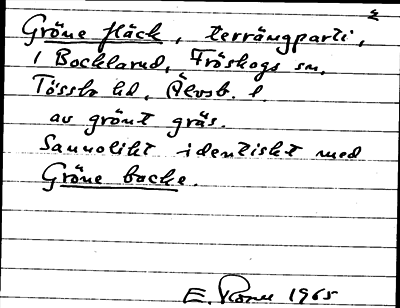 Gröne fläck, terrängparti,
i Bocklarud, Fröskogs sn,
Tössbo hd, Älvsb. l.
av grönt gräs.
Sannolikt identiskt med
Gröne backe.
E. Rone 1965